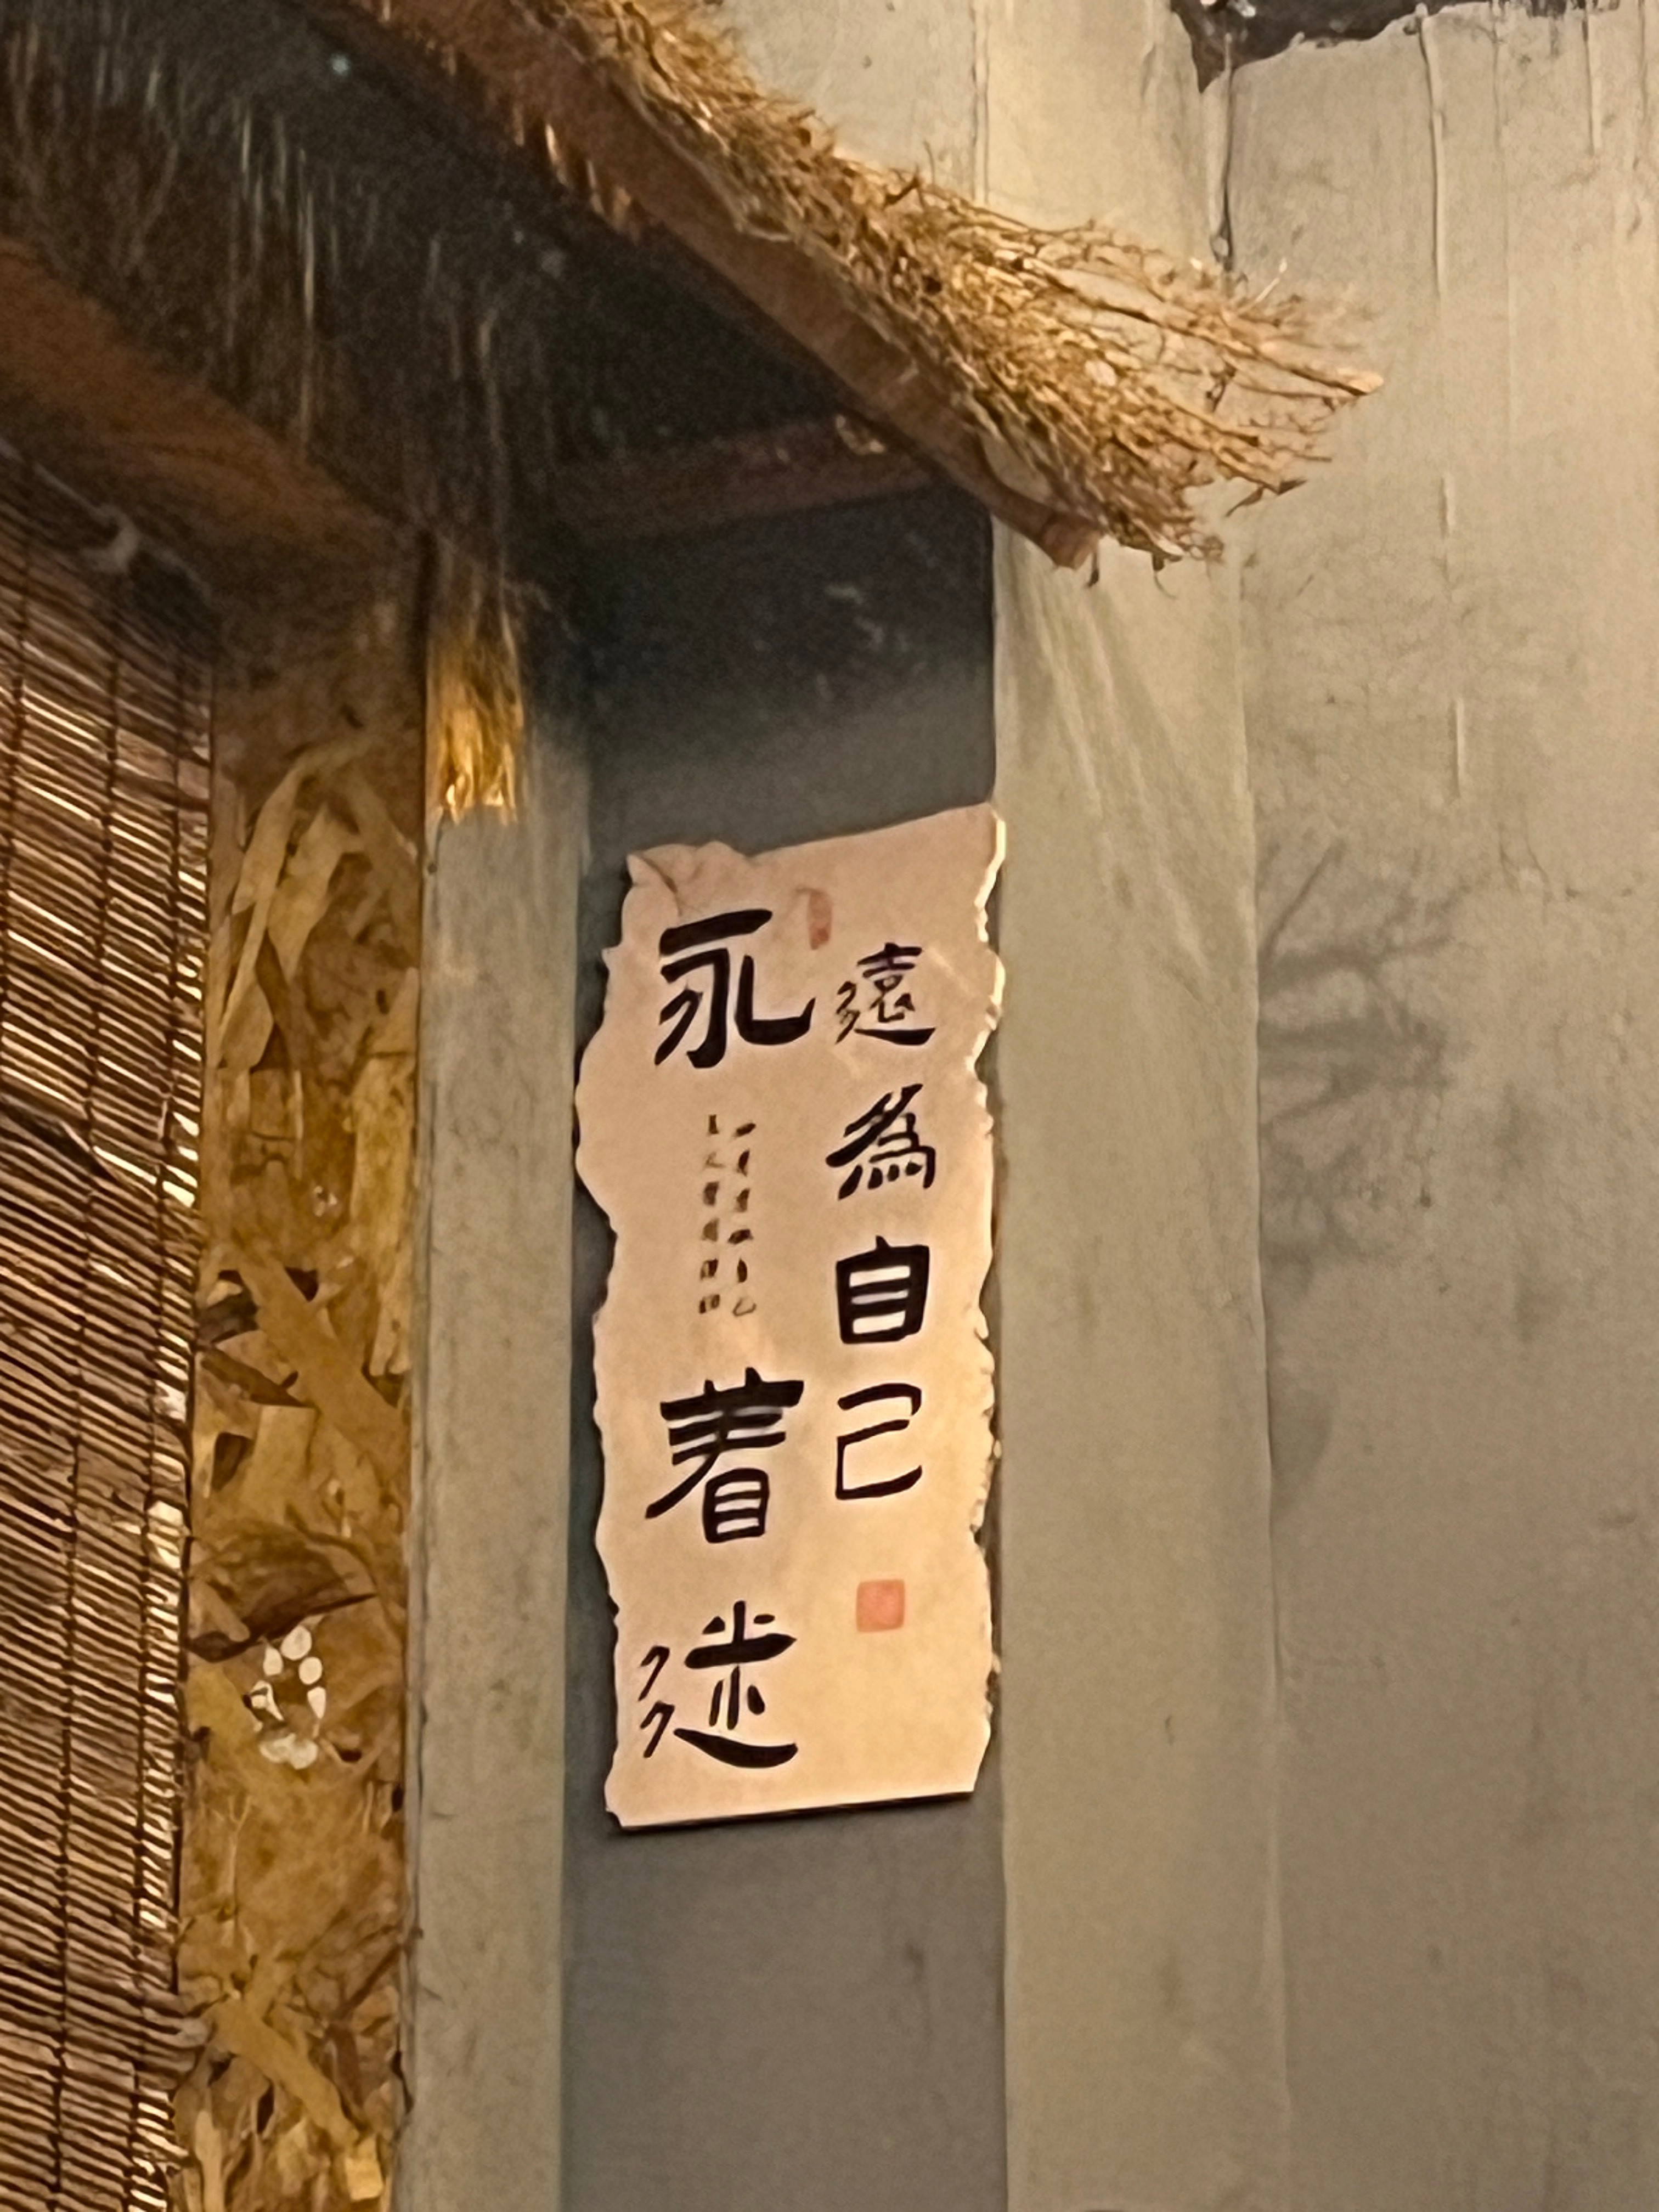 永
遠為自己
着迷